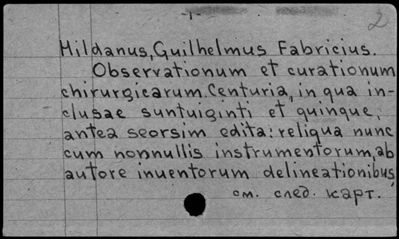 2
Hildanus, Guilhelmus Fabricius.
Observationum et curationum
chirurgicarum Centuria, in qua in-
clusae suntuiginti et quinque,
antea seorsim edita: reliqua nunc
cum nonnullis instrumentorum, ab
autore inuentorum delineationibus,
см. след. карт.